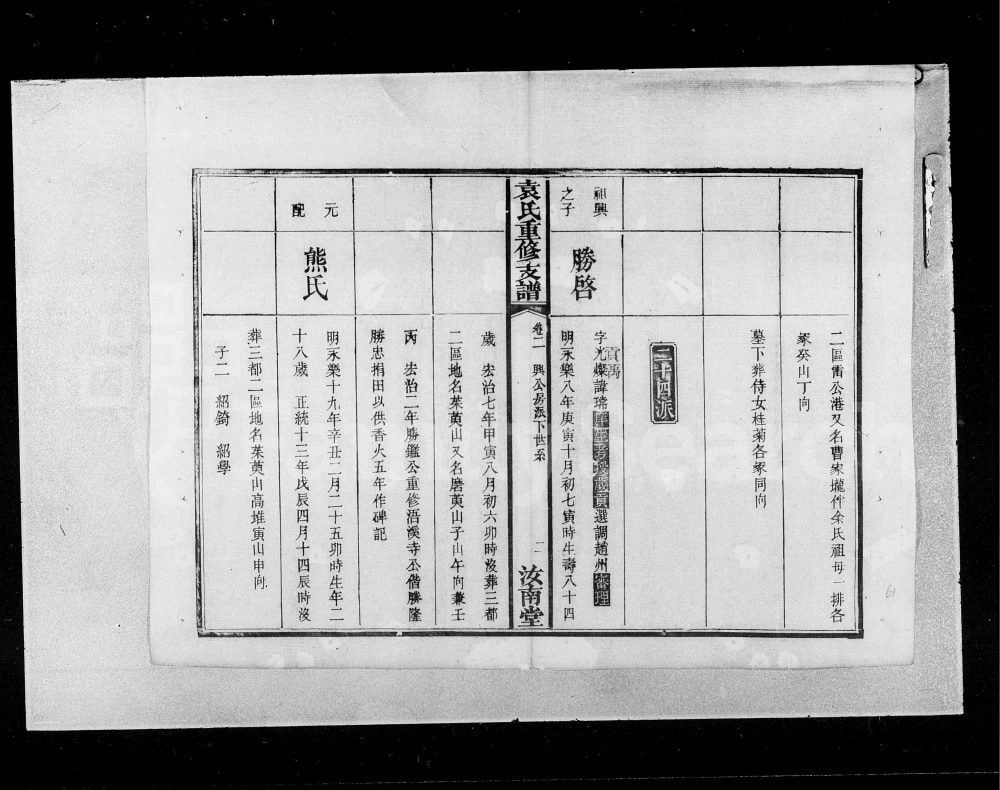 二區雷公港又名曹家壠伴余氏祖母一排各
冢癸山丁向
墓下葬侍女桂菊各冢同向
二十四派
祖興
之子
勝啓
字光燦諱瑞庠生歲貢選調趙州審理
貢禹
明永樂八年庚寅十月初七寅時生壽八十四
袁氏重修支譜
卷二 興公房派下世系
汝南堂
歲 宏治七年甲寅八月初六卯時沒葬三都
二區地名茱萸山又名磨萸山子山午向兼壬
丙 宏治二年勝鑑公重修浯溪寺公偕勝隆
勝忠捐田以供香火五年作碑記
元
配
熊氏
明永樂十九年辛丑二月二十五卯時生年二
十八歲 正統十三年戊辰四月十四辰時沒
葬三都二區地名茱萸山高堆寅山申向
子二 紹錡 紹學
61